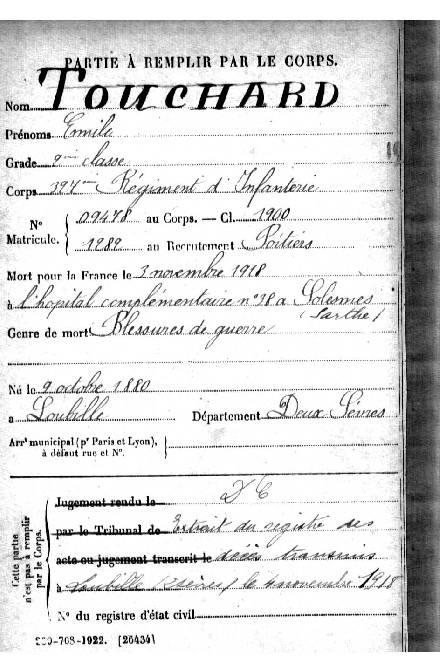 PARTIE À REMPLIR PAR LE CORPS.
TOUCHARD
Nom
Prénoms Emile
Grade 2me classe
Corps 397me Régiment d'Infanterie
N° Matricule. 09478 au Corps. — Cl. 1900
1989 au Recrutement Poitiers
Mort pour la France le 3 novembre 1918
à l'hopital complémentaire n° 38 a Solesmes
(Sarthe)
Genre de mort Blessures de guerre
Né le 9 octobre 1880
a Loubillé Département Deux Sèvres
Arrt municipal (pr Paris et Lyon),
à défaut rue et N°.
Cette partie n'est pas à remplir par le Corps.
Jugement rendu le D C
par le Tribunal de Extrait du registre des
acte ou jugement transcrit le décès transmis
à Loubillé le 4 novembre 1918
N° du registre d'état civil
-708-1922. [26434]